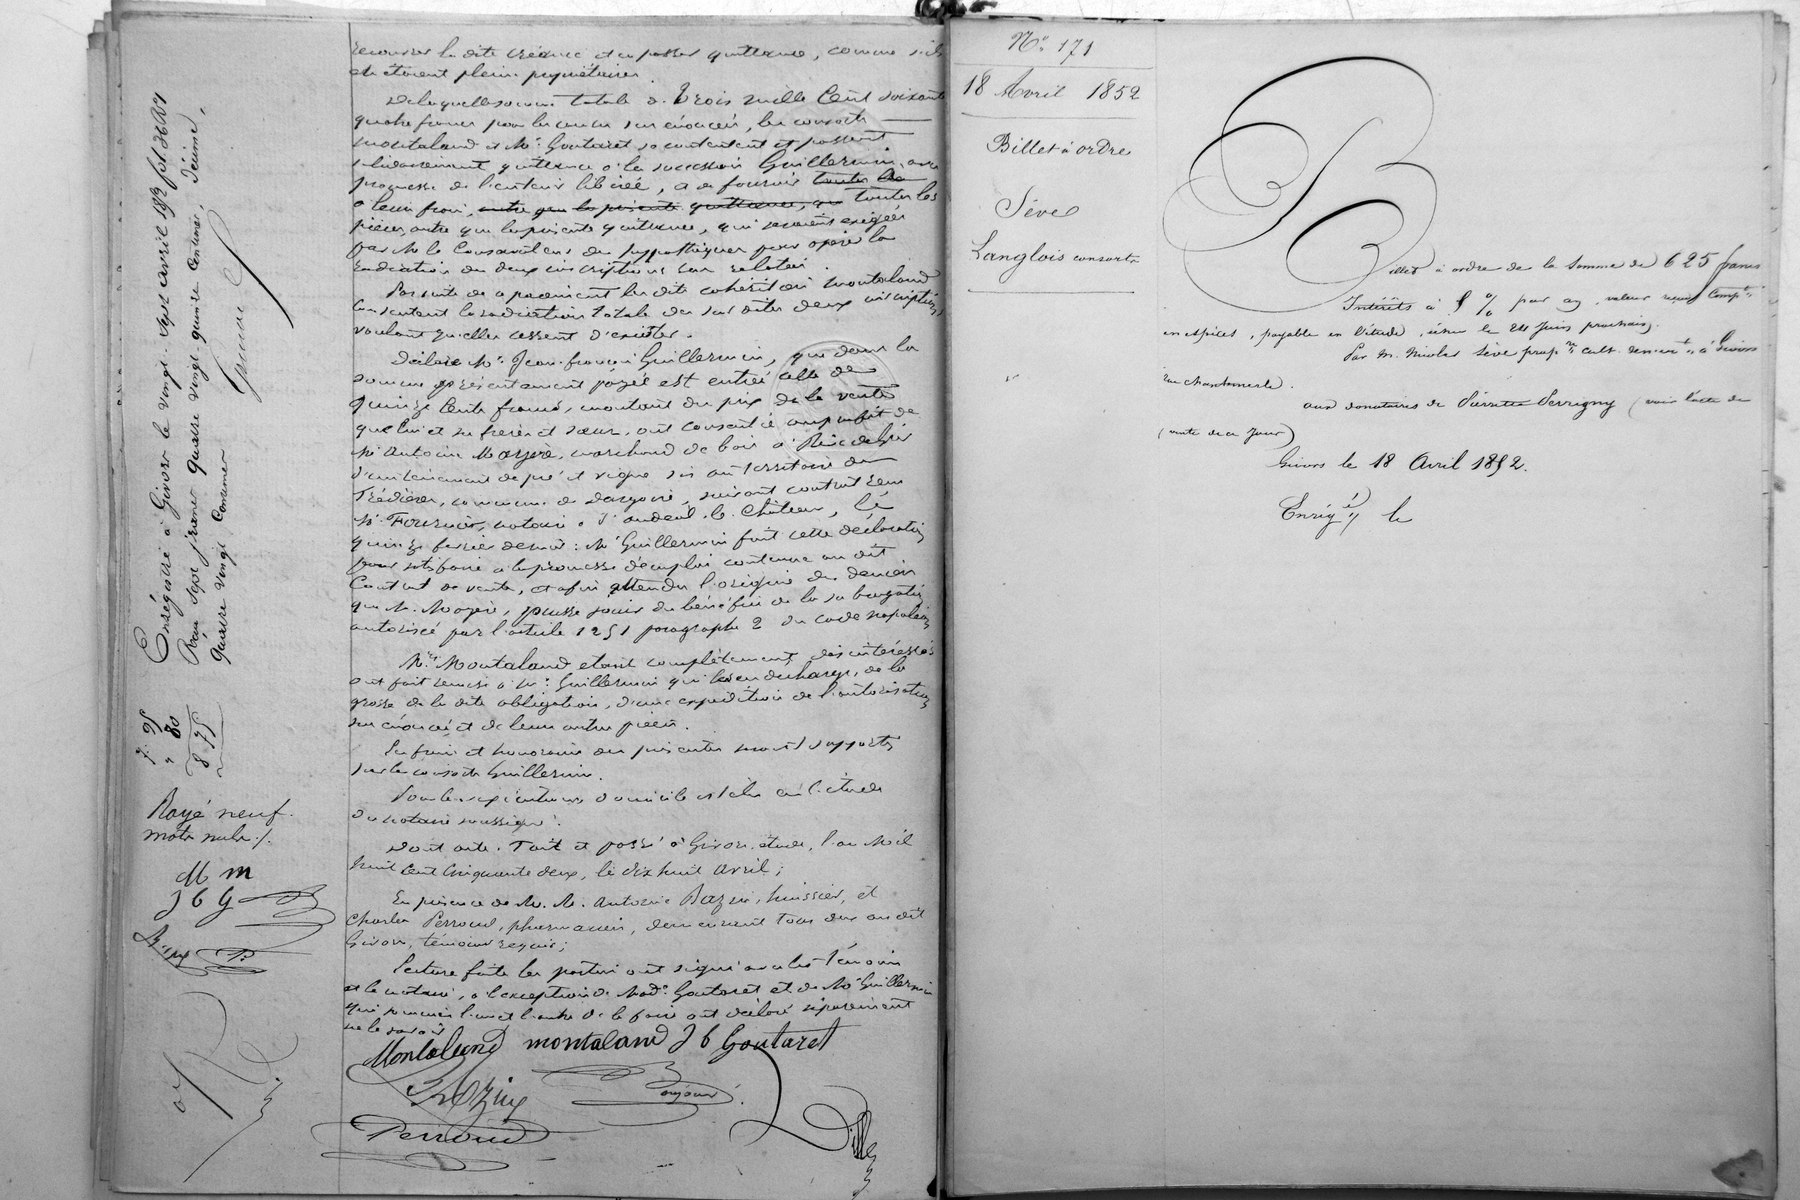 recouvrer la dite créance et en passer quittance, comme s'ils
en étaient pleins propriétaires.
De laquelle somme totale de Trois mille Cent soixante
quatre francs pour les causes sus énoncées, les consorts
montaland et Me Goutaret se contentent et passent
solidairement quittance à la succession Guillermin, avec
promesse de l'entière libérée, et de fournir toutes les
à leurs frais, outre que la présente quittance, qui toutes les
pièces, outre que la présente quittance, qui seraient exigées
par Mr le Conservateur des hypothèques pour opérer la
radiation des deux inscriptions sus relatées.
Par suite de ce paiement les dits cohéritiers montaland
consentent la radiation totale des sus dites deux inscriptions
voulant qu'elles cessent d'exister.
Déclare Mr Jean françois Guillermin, que dans la
somme présentement payée est entrée celle de
quinze Cents francs, montant du prix de la vente
que lui et ses frères et sœur, ont consentie au profit de
Mr Antoine Mayere, marchand de bois à Rive de Gier
d'un tènement de pré et vigne sis au territoire de
commune de dargoire, suivant contrat reçu
Me Fournier, notaire à le Château, le
quinze février dernier : Mr Guillermin fait cette déclaration
pour satisfaire à la promesse d'emploi contenue au dit
Contrat de vente, et afin attendu l'origine des deniers
que Mr Mayere, puisse jouir du bénéfice de la subrogation
autorisée par l'article 1251 paragraphe 2 du code napoléon
Mrs Montaland etant complètement désintéressés
ont fait remise à Mr Guillermin qui les en décharge, de la
grosse de la dite obligation, d'une expédition de l'autorisation
sus énoncée et de leurs autres pièces.
Les frais et honoraires des présentes seront supportés
par les consorts Guillermin.
Pour l'exécution domicile est élu en l'étude
du notaire soussigné.
Dont acte. Fait et passé à Givors, étude, l'an Mil
huit Cent Cinquante deux, le dix huit avril ;
En présence de M. M. Antoine Bazin, huissier, et
Charles Perroud, pharmacien, demeurant tous deux au dit
Givors, témoins requis ;
Lecture faite les parties ont signé avec les témoins
et le notaire, à l'exception de Made Goutaret et de Mr Guillermin
qui sommés l'un et l'autre de le faire ont déclaré séparément
ne le savoir
Montaland montaland J b Goutaret
Bazin
Perroud
Enrégistré à Givors le vingt sept avril 1852
Reçu sept francs quatre vingt quinze Centimes, Décime,
quatre vingt Centimes
7. 95
" 80
8 75
Rayé neuf
mots nuls ./.
M m
J b G
No 171
18 Avril 1852
Billet à ordre
Sève
Langlois consorts
Billet à ordre de la somme de 625 francs
Intérêts à 5 % par an, valeur reçue compt
en espèces, payable en l'étude, le 24 Juin prochain.
Par M. Nicolas Sève propre cult. demeurt à Givors
rue chantemerle.
aux donataires de Pierrette Perrigny (voir l'acte de
vente de ce Jour)
Givors le 18 Avril 1852.
Enrigé le